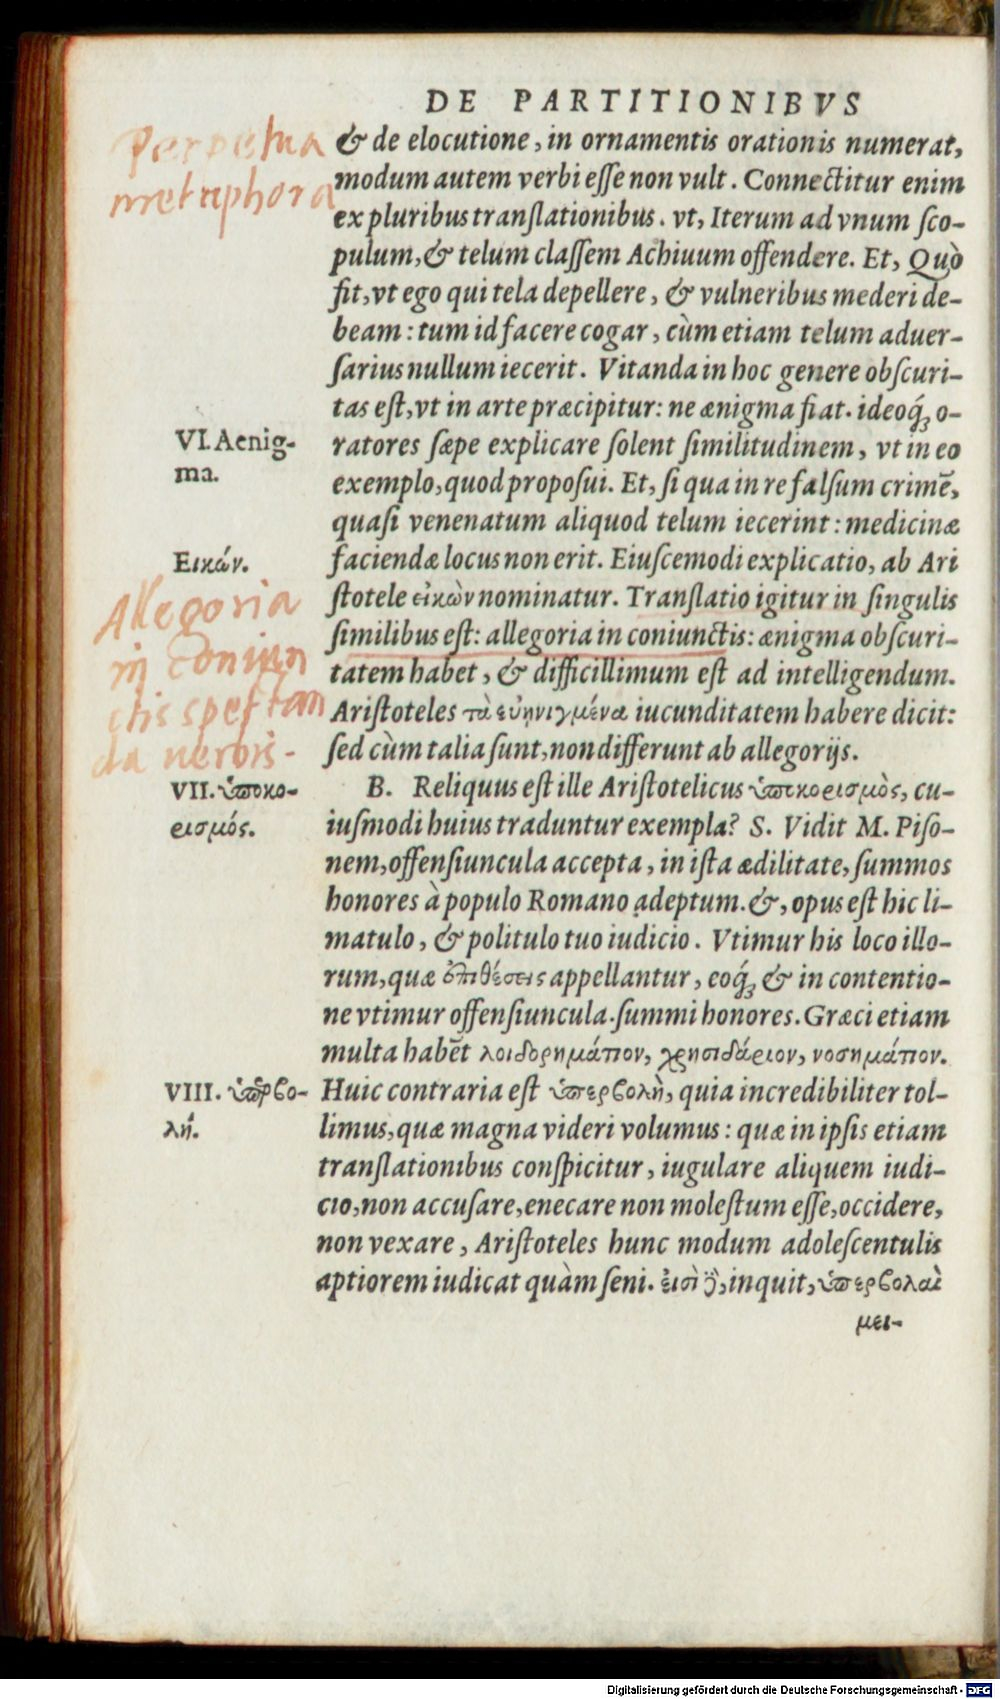 DE PARTITIONIBVS
Perpetua
metaphora
& de elocutione, in ornamentis orationis numerat,
modum autem verbi eſſe non vult. Connectitur enim
ex pluribus tranſlationibus. vt, Iterum ad vnum ſco-
pulum, & telum claſſem Achiuum offendere. Et, Quò
fit, vt ego qui tela depellere, & vulneribus mederi de-
beam: tum id facere cogar, cùm etiam telum aduer-
ſarius nullum iecerit. Vitanda in hoc genere obſcuri-
tas eſt, vt in arte præcipitur: ne ænigma fiat. ideoq́ꝫ o-
VI. Aenig-
ma.
ratores ſæpe explicare ſolent ſimilitudinem, vt in eo
exemplo, quod propoſui. Et, ſi qua in re falſum crimē,
quaſi venenatum aliquod telum iecerint: medicinæ
Εικάν.
faciendæ locus non erit. Eiuſcemodi explicatio, ab Ari
ſtotele εἰκὼν nominatur. Tranſlatio igitur in ſingulis
Allegoria
in coniun
ctis spectan
da verbis-
ſimilibus eſt: allegoria in coniunctis: ænigma obſcuri-
tatem habet, & difficillimum eſt ad intelligendum.
Ariſtoteles τὰ εὐῃνιγμένα iucunditatem habere dicit:
ſed cùm talia ſunt, non differunt ab allegorijs.
VII. ὑποκο-
ρισμός.
B. Reliquus eſt ille Ariſtotelicus ὑποκορισμὸς, cu-
iuſmodi huius traduntur exempla? S. Vidit M. Piſo-
nem, offenſiuncula accepta, in iſta ædilitate, ſummos
honores à populo Romano adeptum. &, opus eſt hic li-
matulo, & politulo tuo iudicio. Vtimur his loco illo-
rum, quæ ἐπιθέσεις appellantur, eoq́ꝫ & in contentio-
ne vtimur offenſiuncula. ſummi honores. Græci etiam
multa habēt λοιδορημάτιον, χρυσιδάριον, νοσημάτιον.
VIII. ὑπερβο-
λή.
Huic contraria eſt ὑπερβολὴ, quia incredibiliter tol-
limus, quæ magna videri volumus: quæ in ipſis etiam
tranſlationibus conſpicitur, iugulare aliquem iudi-
cio, non accuſare, enecare non moleſtum eſſe, occidere,
non vexare, Ariſtoteles hunc modum adoleſcentulis
aptiorem iudicat quàm ſeni. εἰσὶ δὲ, inquit, ὑπερβολαὶ
μει-
Digitalisierung gefördert durch die Deutsche Forschungsgemeinschaft - DFG